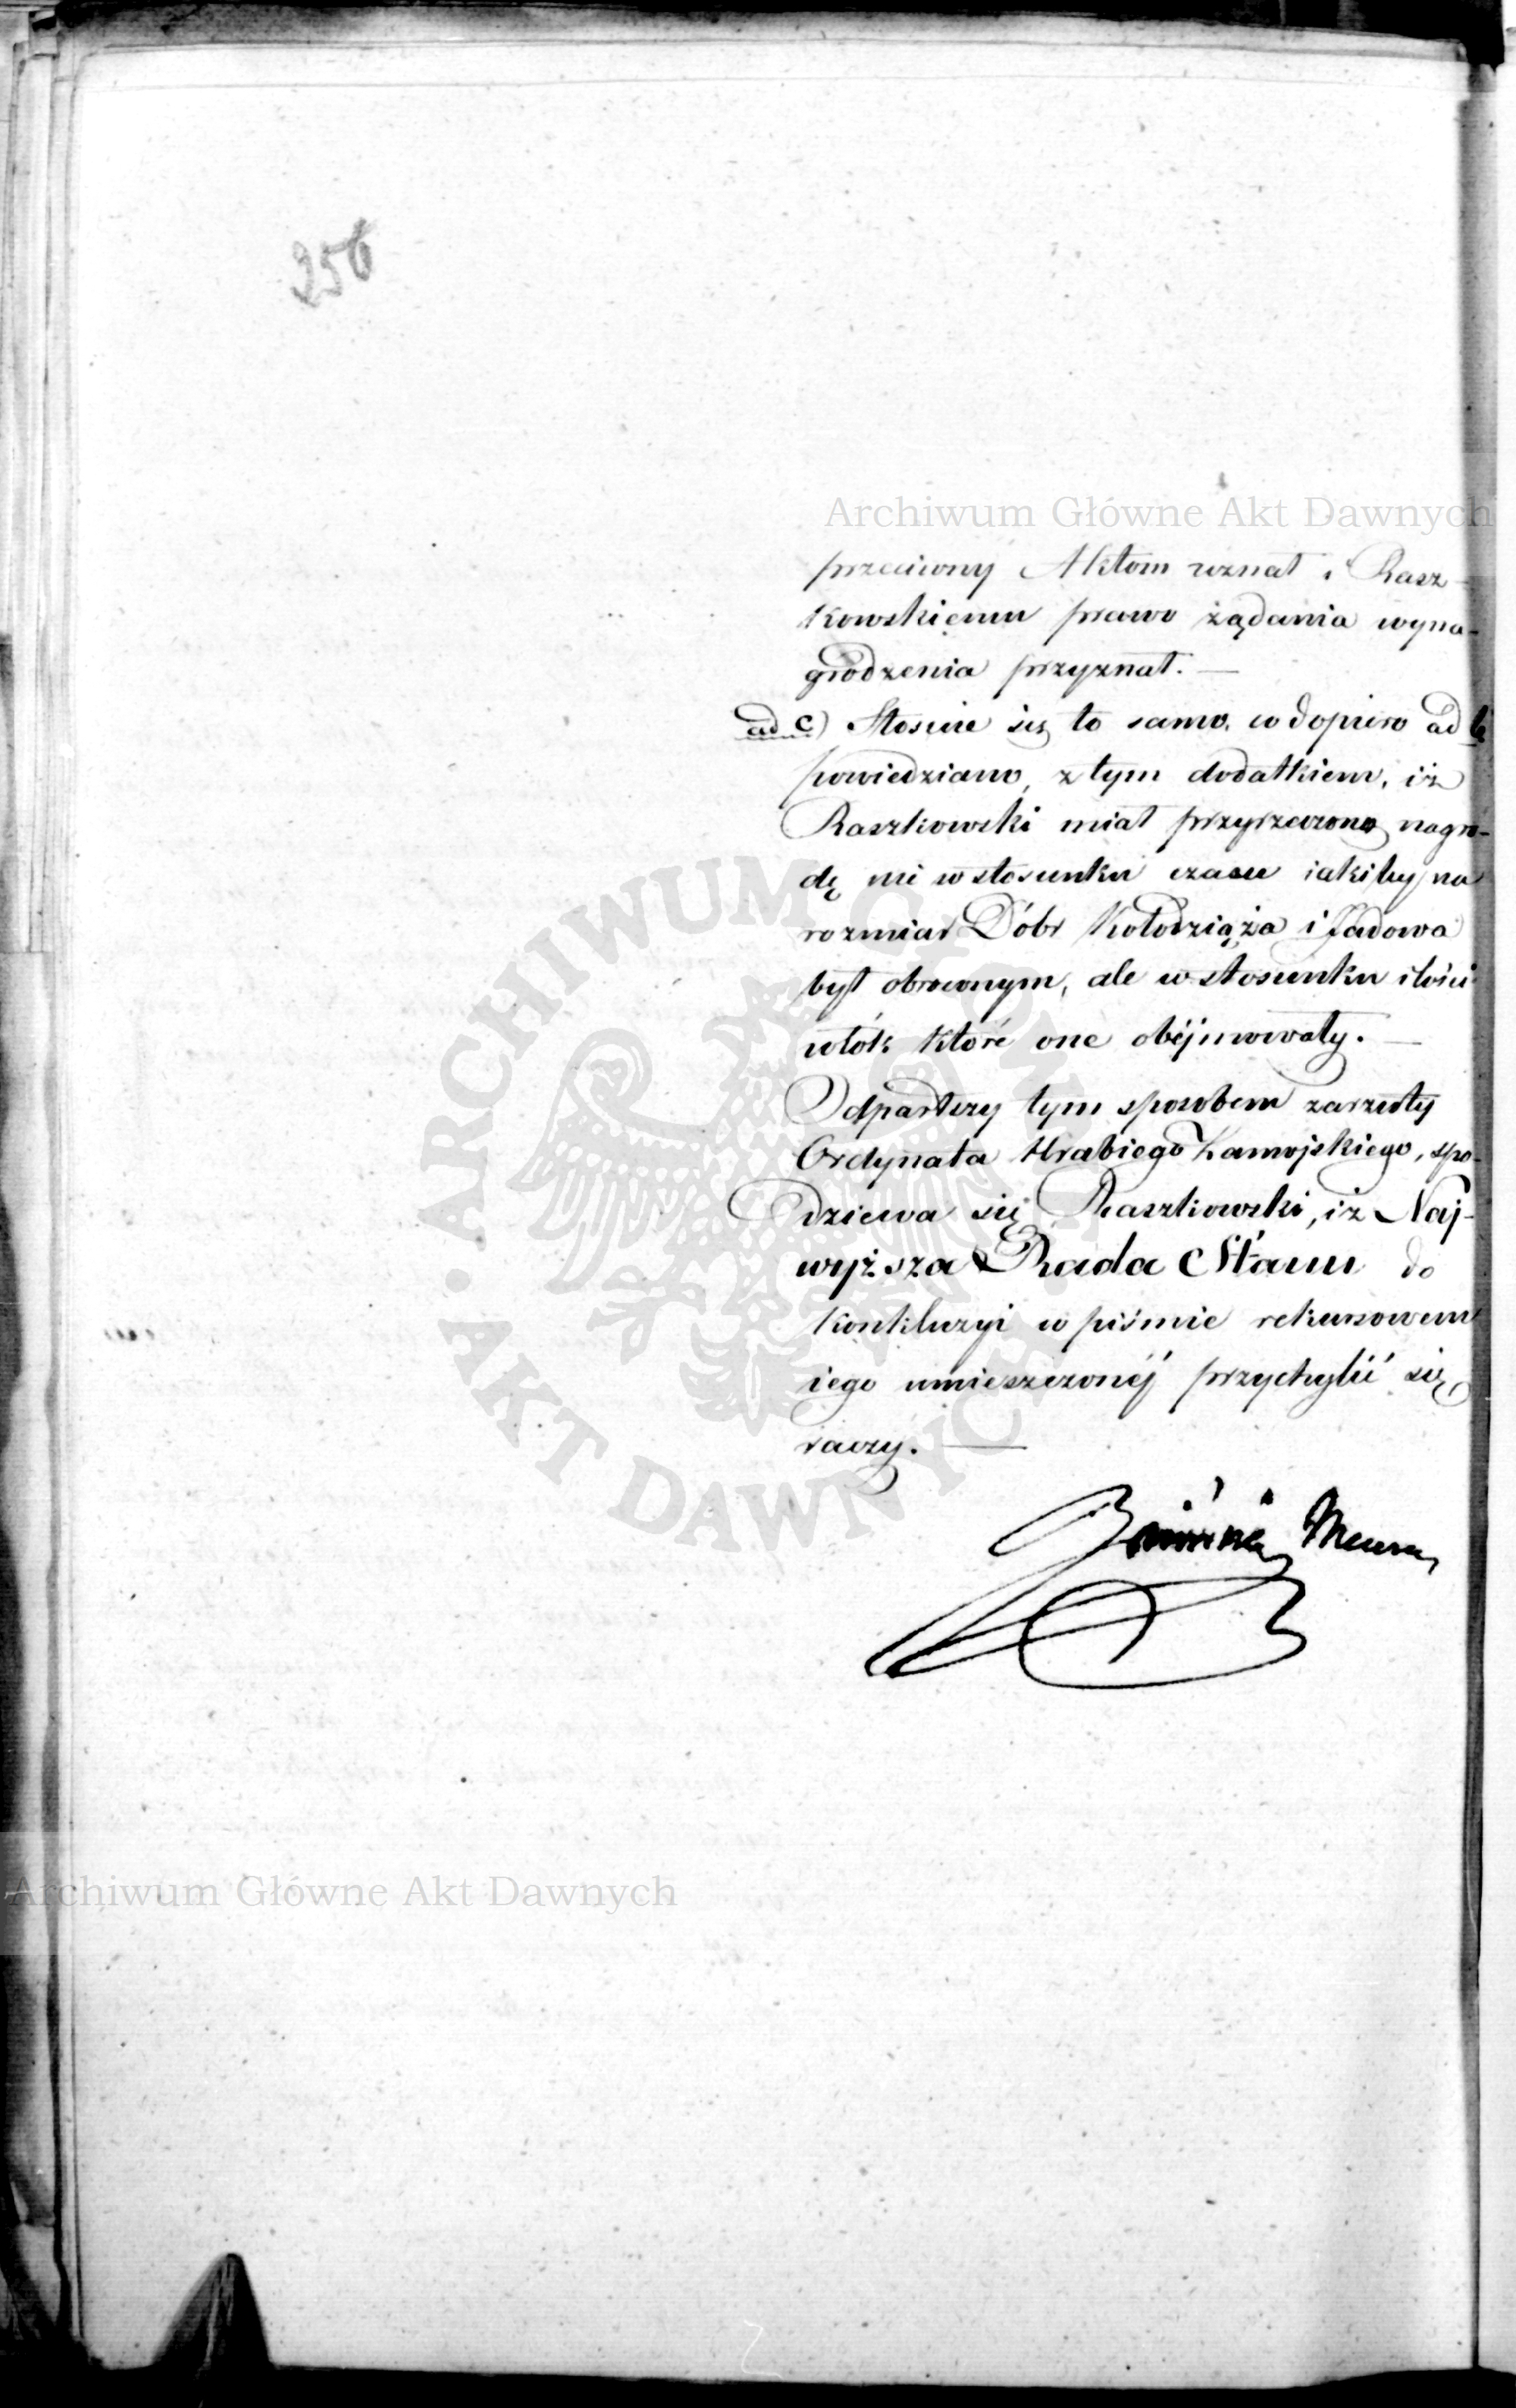 256
Archiwum Główne Akt Dawnych
przeciwny Aktom uznał i Rasz-
kowskiemu prawo żądania wyna-
grodzenia przyznał. —
ad c) Stosuie się to samo, co dopiero ad b
powiedziano, z tym dodatkiem, iż
Raszkowski miał przyrzeczoną nagro-
dę nie w stosunku czasu iakiby na
rozmiar Dóbr Kołodziąża i Jadowa
był obróconym, ale w stosunku ilości
włók które one obéjmowały. —
Odpartszy tym sposobem zarzuty
Ordynata Hrabiego Zamojskiego, spo-
dziewa się Raszkowski, iż Naj-
wyższa Rada Stanu do
konkluzyi w piśmie rekursowem
iego umieszczonéj przychylić się
raczy. —
ARCHIWUM GŁÓWNE · AKT DAWNYCH ·
Archiwum Główne Akt Dawnych